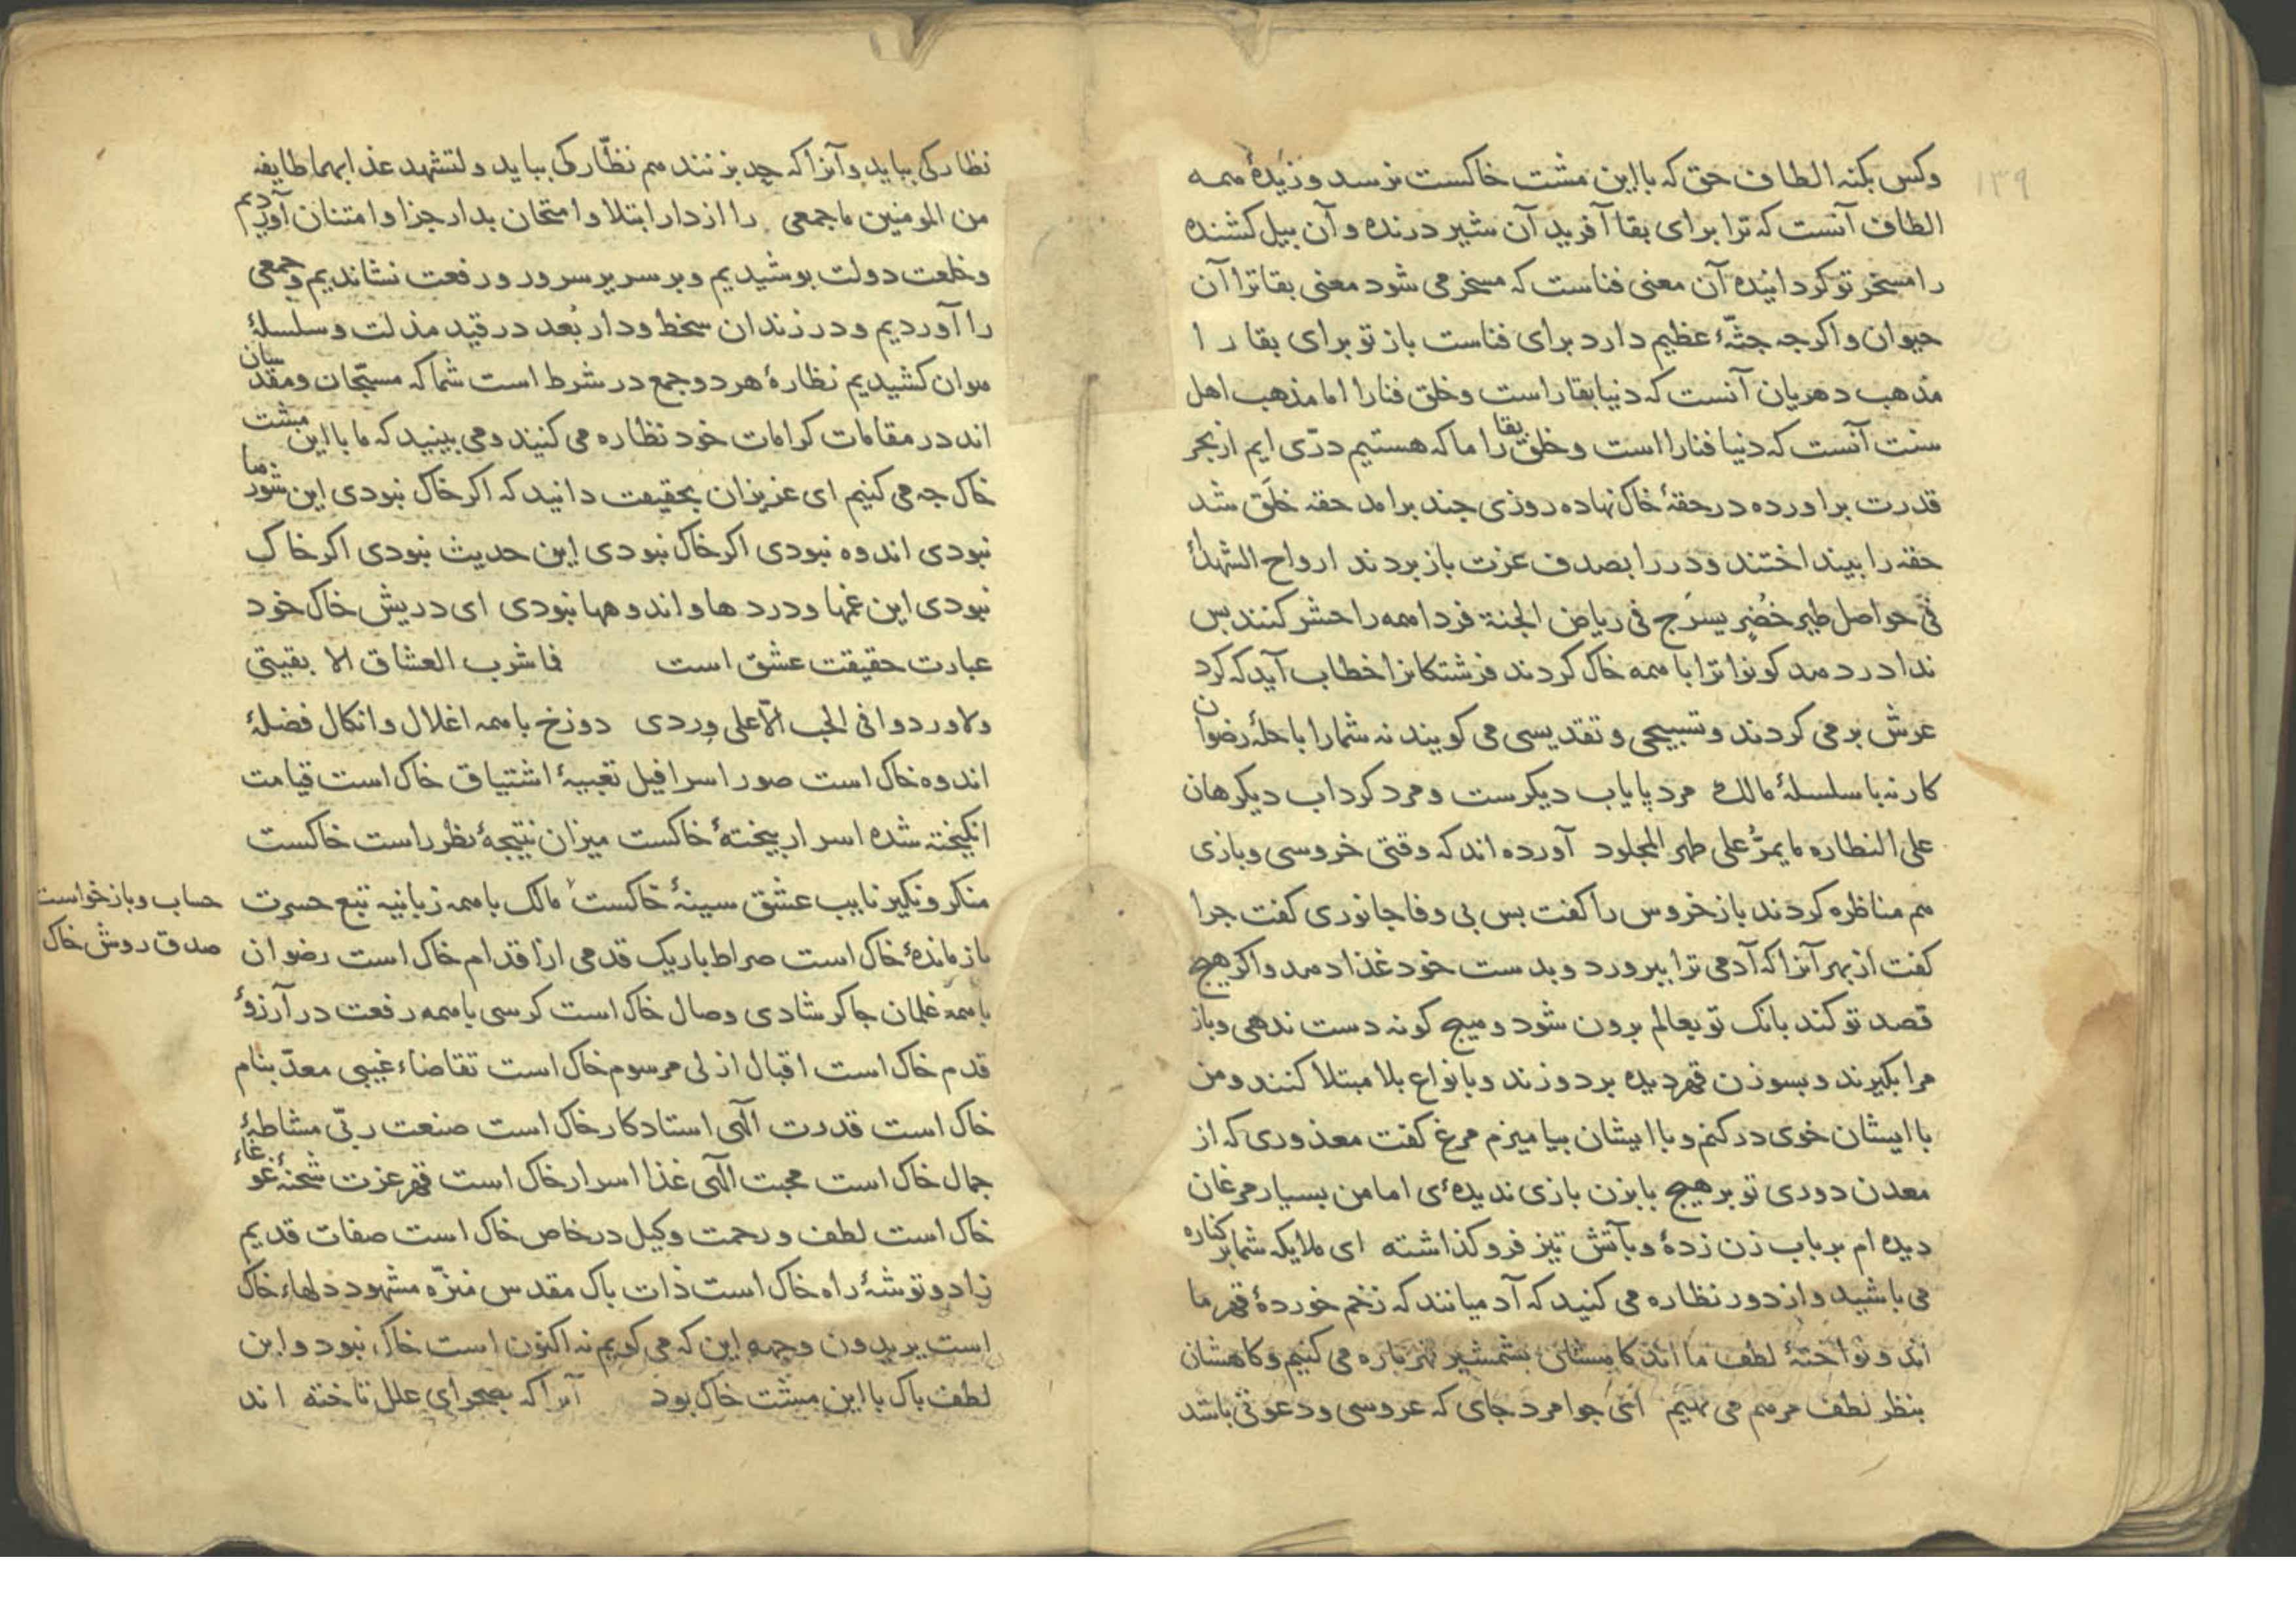 ۱۳۹
وکس بکنه الطاف حق که با این مشت خاکست نرسد و زبدهٔ همه
الطاف آنست که ترا برای بقا آفرید آن شیر درنده و آن پیل کشنده
را مسخر تو کردانیده آن معنی فناست که مسخر می شود معنی بقا ترا آن
حیوان و اکرچه جثّهٔ عظیم دارد برای فناست باز تو برای بقا را
مذهب دهریان آنست که دنیا بقا راست و خلق فنا را اما مذهب اهل
سنت آنست که دنیا فنا را است و خلق بقا را ما که هستیم درّی ایم از بحر
قدرت براورده در حقهٔ خاک نهاده روزی چند برامد حقه خلَق شد
حقه را بینداختند و در را بصدف عزت باز بردند ارواح الشهدآ
فی حواصل طیر خُضر یسرَح فی ریاض الجنة فردا همه را حشر کنند پس
ندا در دهد کونوا ترابا همه خاک کردند فرشتکانرا خطاب آید که کرد
عرش بر می کردند و تسبیحی و تقدیسی می کویند نه شما را با حلهٔ رضوان
کار نه با سلسلهٔ مالک مرد پایاب دیکرست و مرد کرداب دیکر هان
علی النظاره ما یمرُّ علی ظهر المجلود آورده اند که وقتی خروسی و بازی
هم مناظره کردند باز خروس را کفت بس بی وفا جانوری کفت چرا
کفت از بهر آنرا که آدمی ترا بپرورد و بدست خود غذا دهد و اکر هیچ
قصد تو کند بانک تو بعالم برون شود و هیچ کونه دست ندهی و باز
مرا بکیرند و بسوزن قهر دیده بردوزند و بانواع بلا مبتلا کنند و من
با ایشان خوی در کنم و با ایشان بیامیزم مرغ کفت معذوری که از
معدن دوری تو بر هیچ بابزن بازی ندیدهٔ ای اما من بسیار مرغان
دیده ام بر باب زن زدهٔ و بآتش تیز فرو کذاشته ای ملایکه شما بر کناره
می باشید و از دور نظاره می کنید که آدمیانند که زخم خوردهٔ قهر ما
اند و نواختهٔ لطف ما اند کاهیشان بشمشیر قهر پاره می کنیم و کاهشان
بنظر لطف مرهم می نهیم ای جوامرد جای که عروسی و دعوتی باشد
نظارکی بباید و آنرا که حد بزنند هم نظّارکی بباید ولتشهد عذابهما طایفه
من المومنین ما جمعی را از دار ابتلا و امتحان بدار جزا و امتنان آوردیم
و خلعت دولت پوشیدیم و بر سریر سرور و رفعت نشاندیم و جمعی
را آوردیم و در زندان سخط و دار بُعد در قید مذلت و سلسلهٔ
هوان کشیدیم نظارهٔ هر دو جمع در شرط است شما که مسبّحان و مقدسان
اند در مقامات کرامات خود نظاره می کنید و می بینید که ما با این مشت
خاک چه می کنیم ای عزیزان بحقیقت دانید که اکر خاک نبودی این شورها
نبودی اندوه نبودی اکر خاک نبودی این حدیث نبودی اکر خاک
نبودی این غمها و دردها و اندوهها نبودی ای درویش خاک خود
عبارت حقیقت عشق است فما شرب العشاق الا بقیتی
ولا وردوا فی الحب الّا علی وِردی دوزخ با همه اغلال و انکال فضلهٔ
اندوه خاک است صور اسرافیل تعبیهٔ اشتیاق خاک است قیامت
انکیخته شده اسرار بیختهٔ خاکست میزان نتیجهٔ نظر راست خاکست
منکر و نکیر نایب عشق سینهٔ خاکست مالک با همه زبانیه تبع حسرت
باز ماندهٔ خاک است صراط باریک قدمی از اقدام خاک است رضوان
با همه غلمان چاکر شادی وصال خاک است کرسی با همه رفعت در آرزؤ
قدم خاک است اقبال ازلی مرسوم خاک است تقاضاء غیبی معدّ بنام
خاک است قدرت الٓهی استاد کار خاک است صنعت ربّی مشاطهٔ
جمال خاک است محبت الٓهی غذا اسرار خاک است قهر عزت شحنهٔ غوغاء
خاک است لطف و رحمت وکیل در خاص خاک است صفات قدیم
زاد و توشهٔ راه خاک است ذات پاک مقدس منزّه مشهود دلهاء خاک
است یریدون وجهه این که می کویم نه اکنون است خاک نبود و این
لطف پاک با این مشت خاک بود آنرا که بصحرای علل تاخته اند
حساب و بازخواست
صدق روش خاک